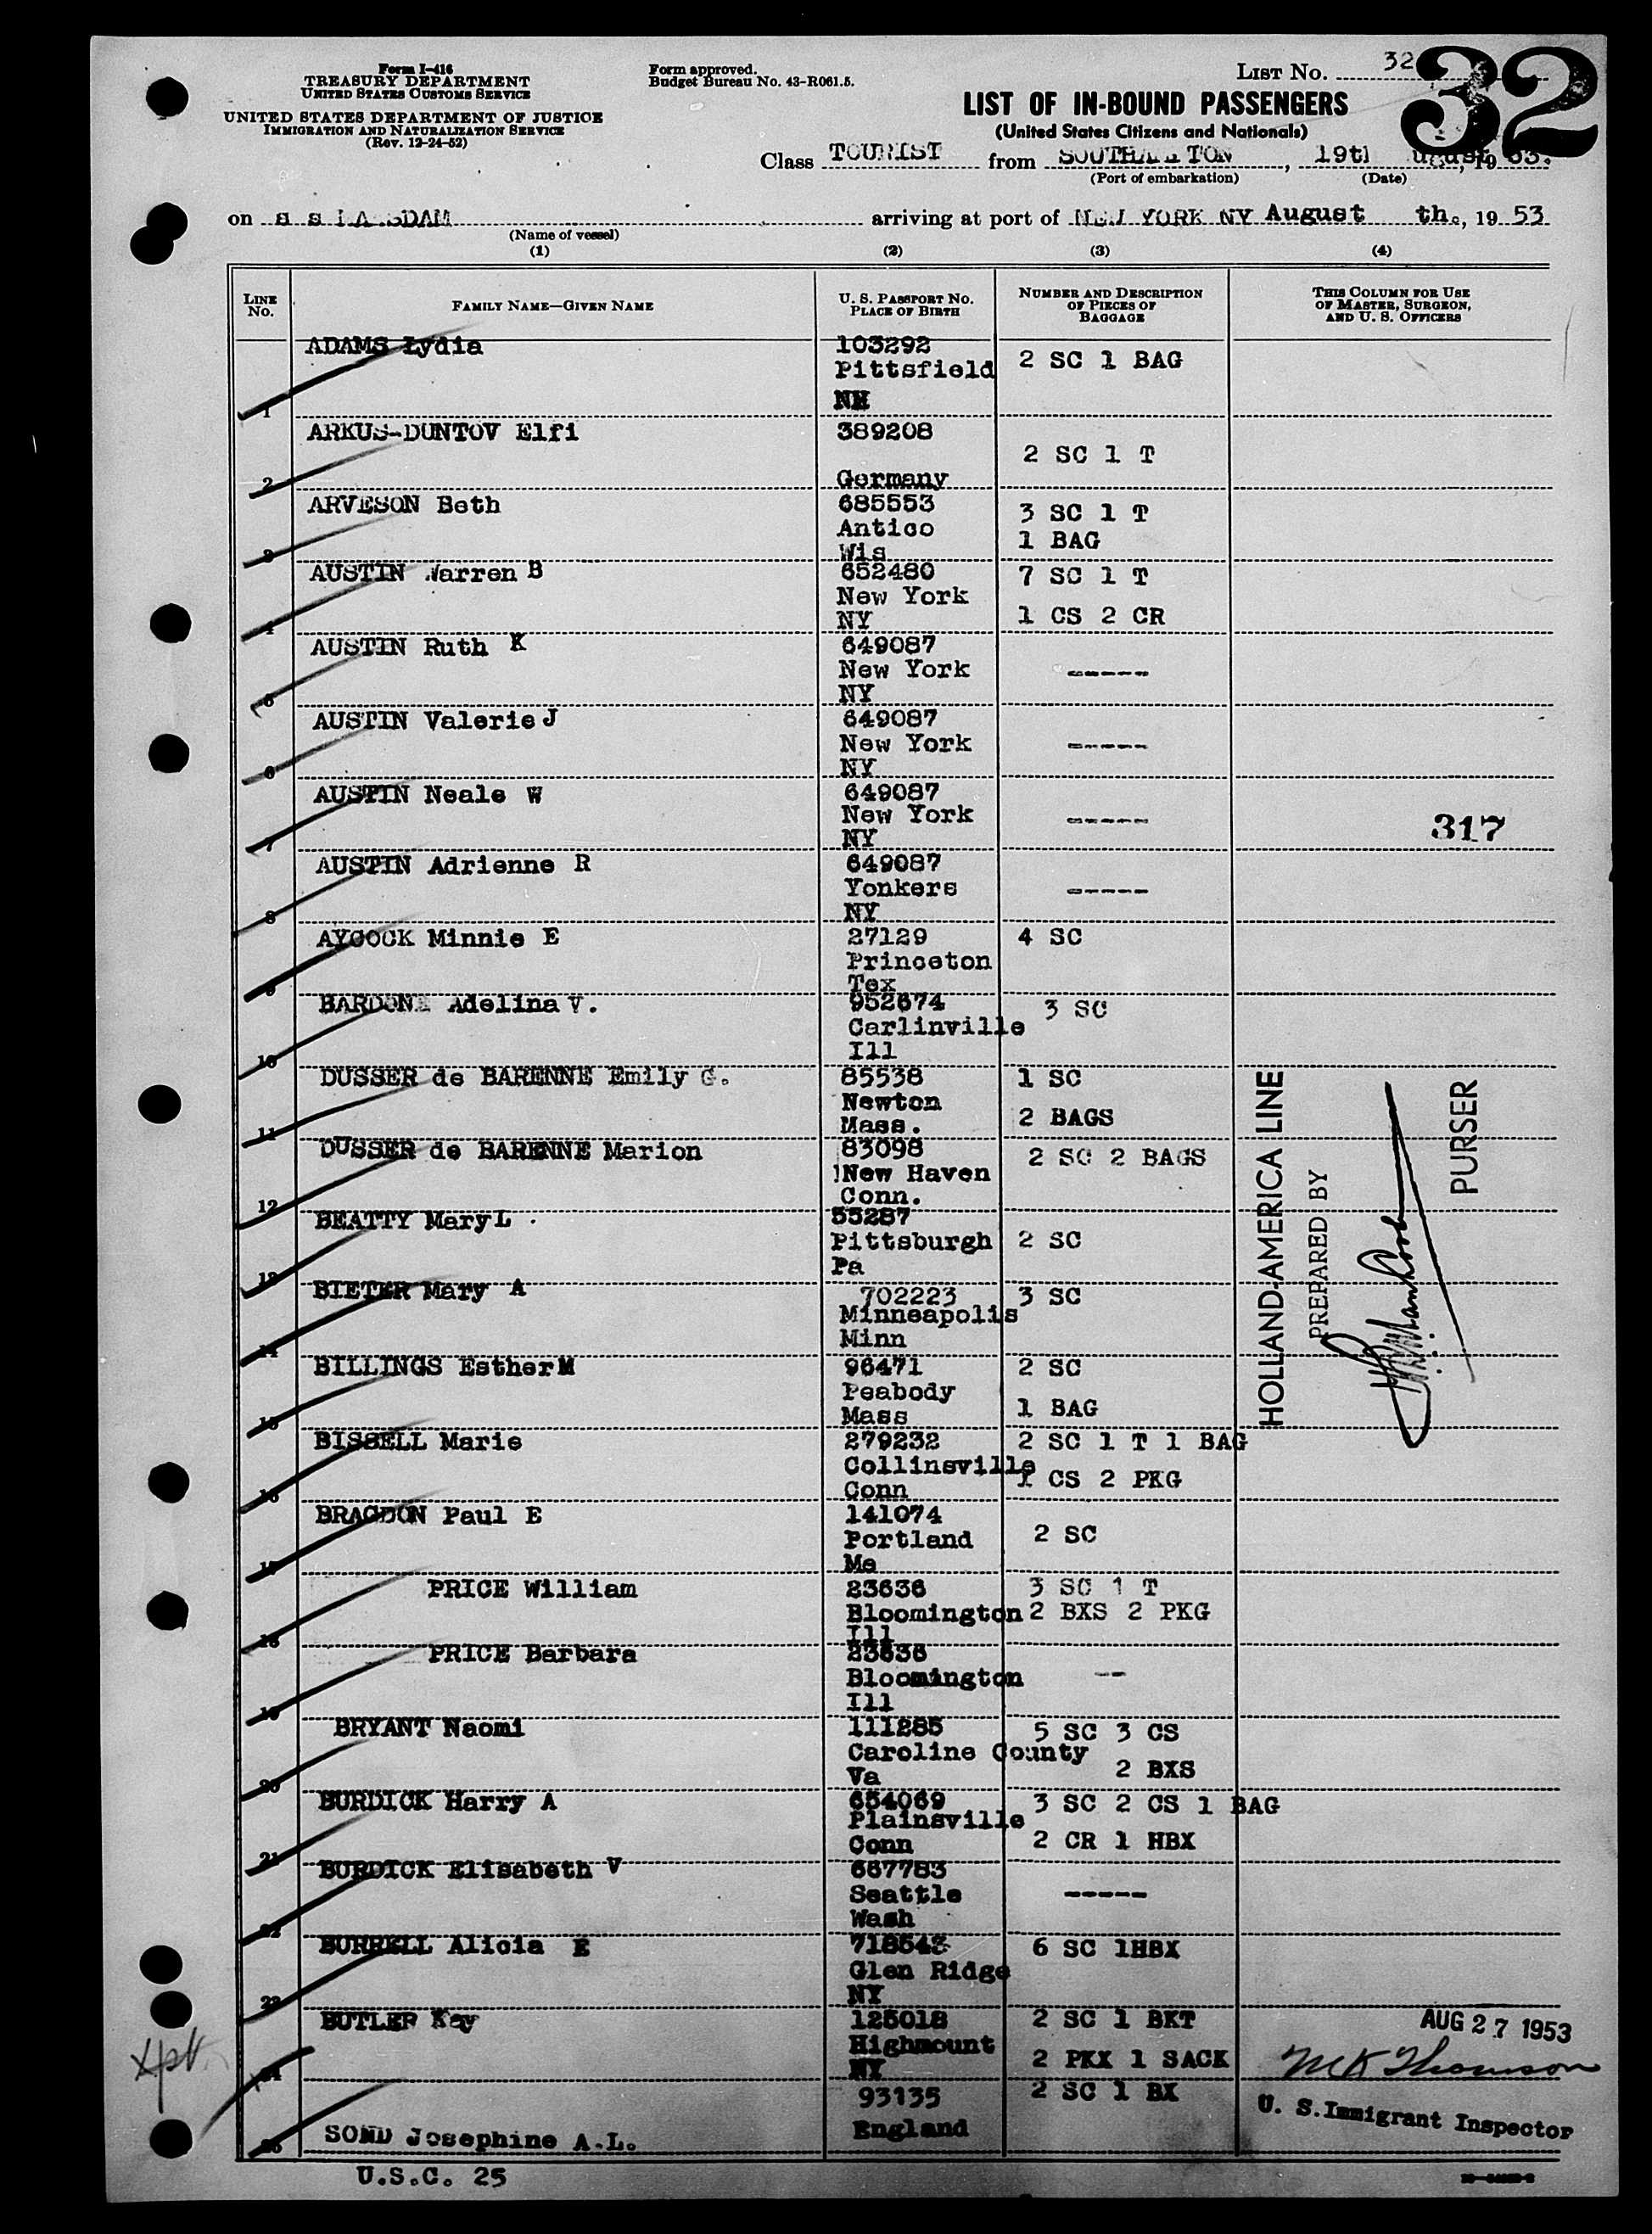 Form I-416
TREASURY DEPARTMENT
UNITED STATES CUSTOMS SERVICE
UNITED STATES DEPARTMENT OF JUSTICE
IMMIGRATION AND NATURALIZATION SERVICE
(Rev. 12-24-52)
Form approved.
Budget Bureau No. 43-R061.5.
LIST No. 32
32
LIST OF IN-BOUND PASSENGERS
(United States Citizens and Nationals)
Class TOURIST from , 19th 19 53.
(Port of embarkation) (Date)
on s s arriving at port of NEW YORK NY August th., 19 53
(Name of vessel)
(1) (2) (3) (4)
LINE No.
FAMILY NAME—GIVEN NAME
U. S. PASSPORT No.
PLACE OF BIRTH
NUMBER AND DESCRIPTION
OF PIECES OF
BAGGAGE
THIS COLUMN FOR USE
OF MASTER, SURGEON,
AND U. S. OFFICERS
ADAMS Lydia 103292
Pittsfield 2 SC 1 BAG
1 NH
ARKUS-DUNTOV Elfi 389208
2 SC 1 T
2 Germany
ARVESON Beth 685553 3 SC 1 T
Antico 1 BAG
3 Wis
AUSTIN Warren B 652480 7 SC 1 T
New York
4 NY 1 CS 2 CR
AUSTIN Ruth K 649087
New York -----
5 NY
AUSTIN Valerie J 649087
New York -----
6 NY
AUSTIN Neale W 649087
New York ----- 317
7 NY
AUSTIN Adrienne R 649087
Yonkers -----
8 NY
AYCOCK Minnie E 27129 4 SC
Princeton
9 Tex
BARDONE Adelina V. 952674 3 SC
Carlinville
10 Ill
DUSSER de BARENNE Emily G. 85538 1 SC
Newton 2 BAGS
11 Mass.
DUSSER de BARENNE Marion 83098 2 SC 2 BAGS
New Haven
12 Conn.
BEATTY Mary L . 55287
Pittsburgh 2 SC
13 Pa
BIETER Mary A 702223 3 SC
Minneapolis
14 Minn
BILLINGS Esther M 96471 2 SC
Peabody 1 BAG
15 Mass
BISSELL Marie 279232 2 SC 1 T 1 BAG
Collinsville 1 CS 2 PKG
16 Conn
BRAGDON Paul E 141074
Portland 2 SC
17 Me
PRICE William 23636 3 SC 1 T
Bloomington 2 BXS 2 PKG
18 Ill
PRICE Barbara 23636
Bloomington --
19 Ill
BRYANT Naomi 111285 5 SC 3 CS
Caroline County 2 BXS
20 Va
BURDICK Harry A 654069 3 SC 2 CS 1 BAG
Plainsville
21 Conn 2 CR 1 HBX
BURDICK Elisabeth V 667783
Seattle -----
22 Wash
BURRELL Alicia E 718543 6 SC 1HBX
Glen Ridge
23 NY
BUTLER Kay 125018 2 SC 1 BKT
Highmount 2 PKX 1 SACK
24 NY
93135 2 SC 1 BX
25 SOND Josephine A.L. England
U.S.C. 25
HOLLAND-AMERICA LINE
PREPARED BY
PURSER
AUG 27 1953
MK Thomson
U. S. Immigrant Inspector